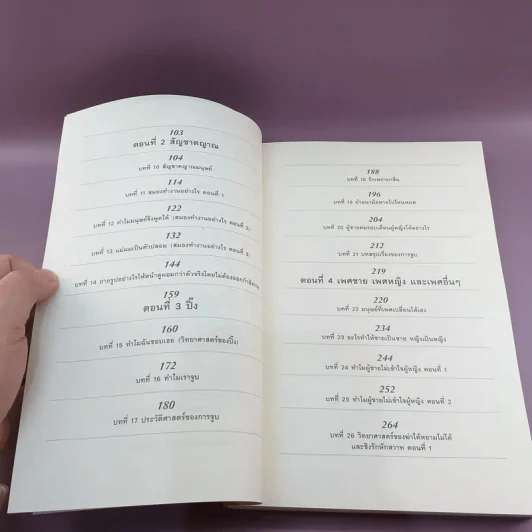 103
ตอนที่ 2 สัญชาตญาณ
104
บทที่ 10 สัญชาตญาณมนุษย์
114
บทที่ 11 สมองทำงานอย่างไร ตอนที่ 1
122
บทที่ 12 ทำไมมนุษย์จึงพูดได้ (สมองทำงานอย่างไร ตอนที่ 2)
132
บทที่ 13 แม่ผมเป็นตัวปลอม (สมองทำงานอย่างไร ตอนที่ 3)
144
บทที่ 14 ถ่ายรูปอย่างไรให้หน้าดูผอมกว่าตัวจริงโดยไม่ต้องออกกำลังกาย
159
ตอนที่ 3 ปิ๊ง
160
บทที่ 15 ทำไมฉันชอบเธอ (วิทยาศาสตร์ของปิ๊ง)
172
บทที่ 16 ทำไมเราจูบ
180
บทที่ 17 ประวัติศาสตร์ของการจูบ
188
บทที่ 18 รักเพราะกลิ่น
196
บทที่ 19
204
บทที่ 20
212
บทที่ 21 บทสรุปเรื่องของการจูบ
219
ตอนที่ 4 เพศชาย เพศหญิง และเพศอื่นๆ
220
บทที่ 22 มนุษย์ที่เพศเปลี่ยนได้เอง
234
บทที่ 23 อะไรทำให้ชายเป็นชาย หญิงเป็นหญิง
244
บทที่ 24 ทำไมผู้ชายไม่เข้าใจผู้หญิง ตอนที่ 1
252
บทที่ 25 ทำไมผู้ชายไม่เข้าใจผู้หญิง ตอนที่ 2
264
บทที่ 26 วิทยาศาสตร์ของฆ่าได้หยามไม่ได้
และชิงรักหักสวาท ตอนที่ 1